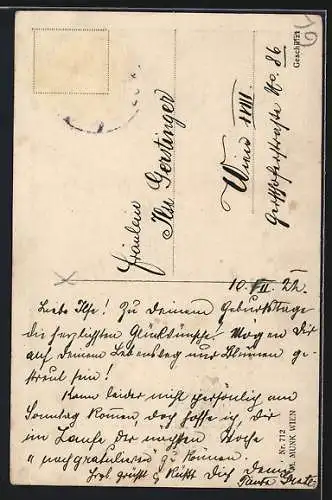 Fräulein
Ilse Gerstinger
Wien XVIII.
No. 86
Geschützt
10. II. 22.
Liebe Ilse! Zu Deinem Geburtstage
die herzlichsten Glückwünsche! Mögen Dir
auf Deinem Lebensweg nur Blumen ge-
streut sein!
Kann leider nicht persönlich am
Sonntag kommen, doch hoffe ich, Dir
im Laufe der nächsten Woche
nachgratulieren zu können.
grüßt & küßt Dich Deine
Tante
Nr. 712
M. MUNK WIEN